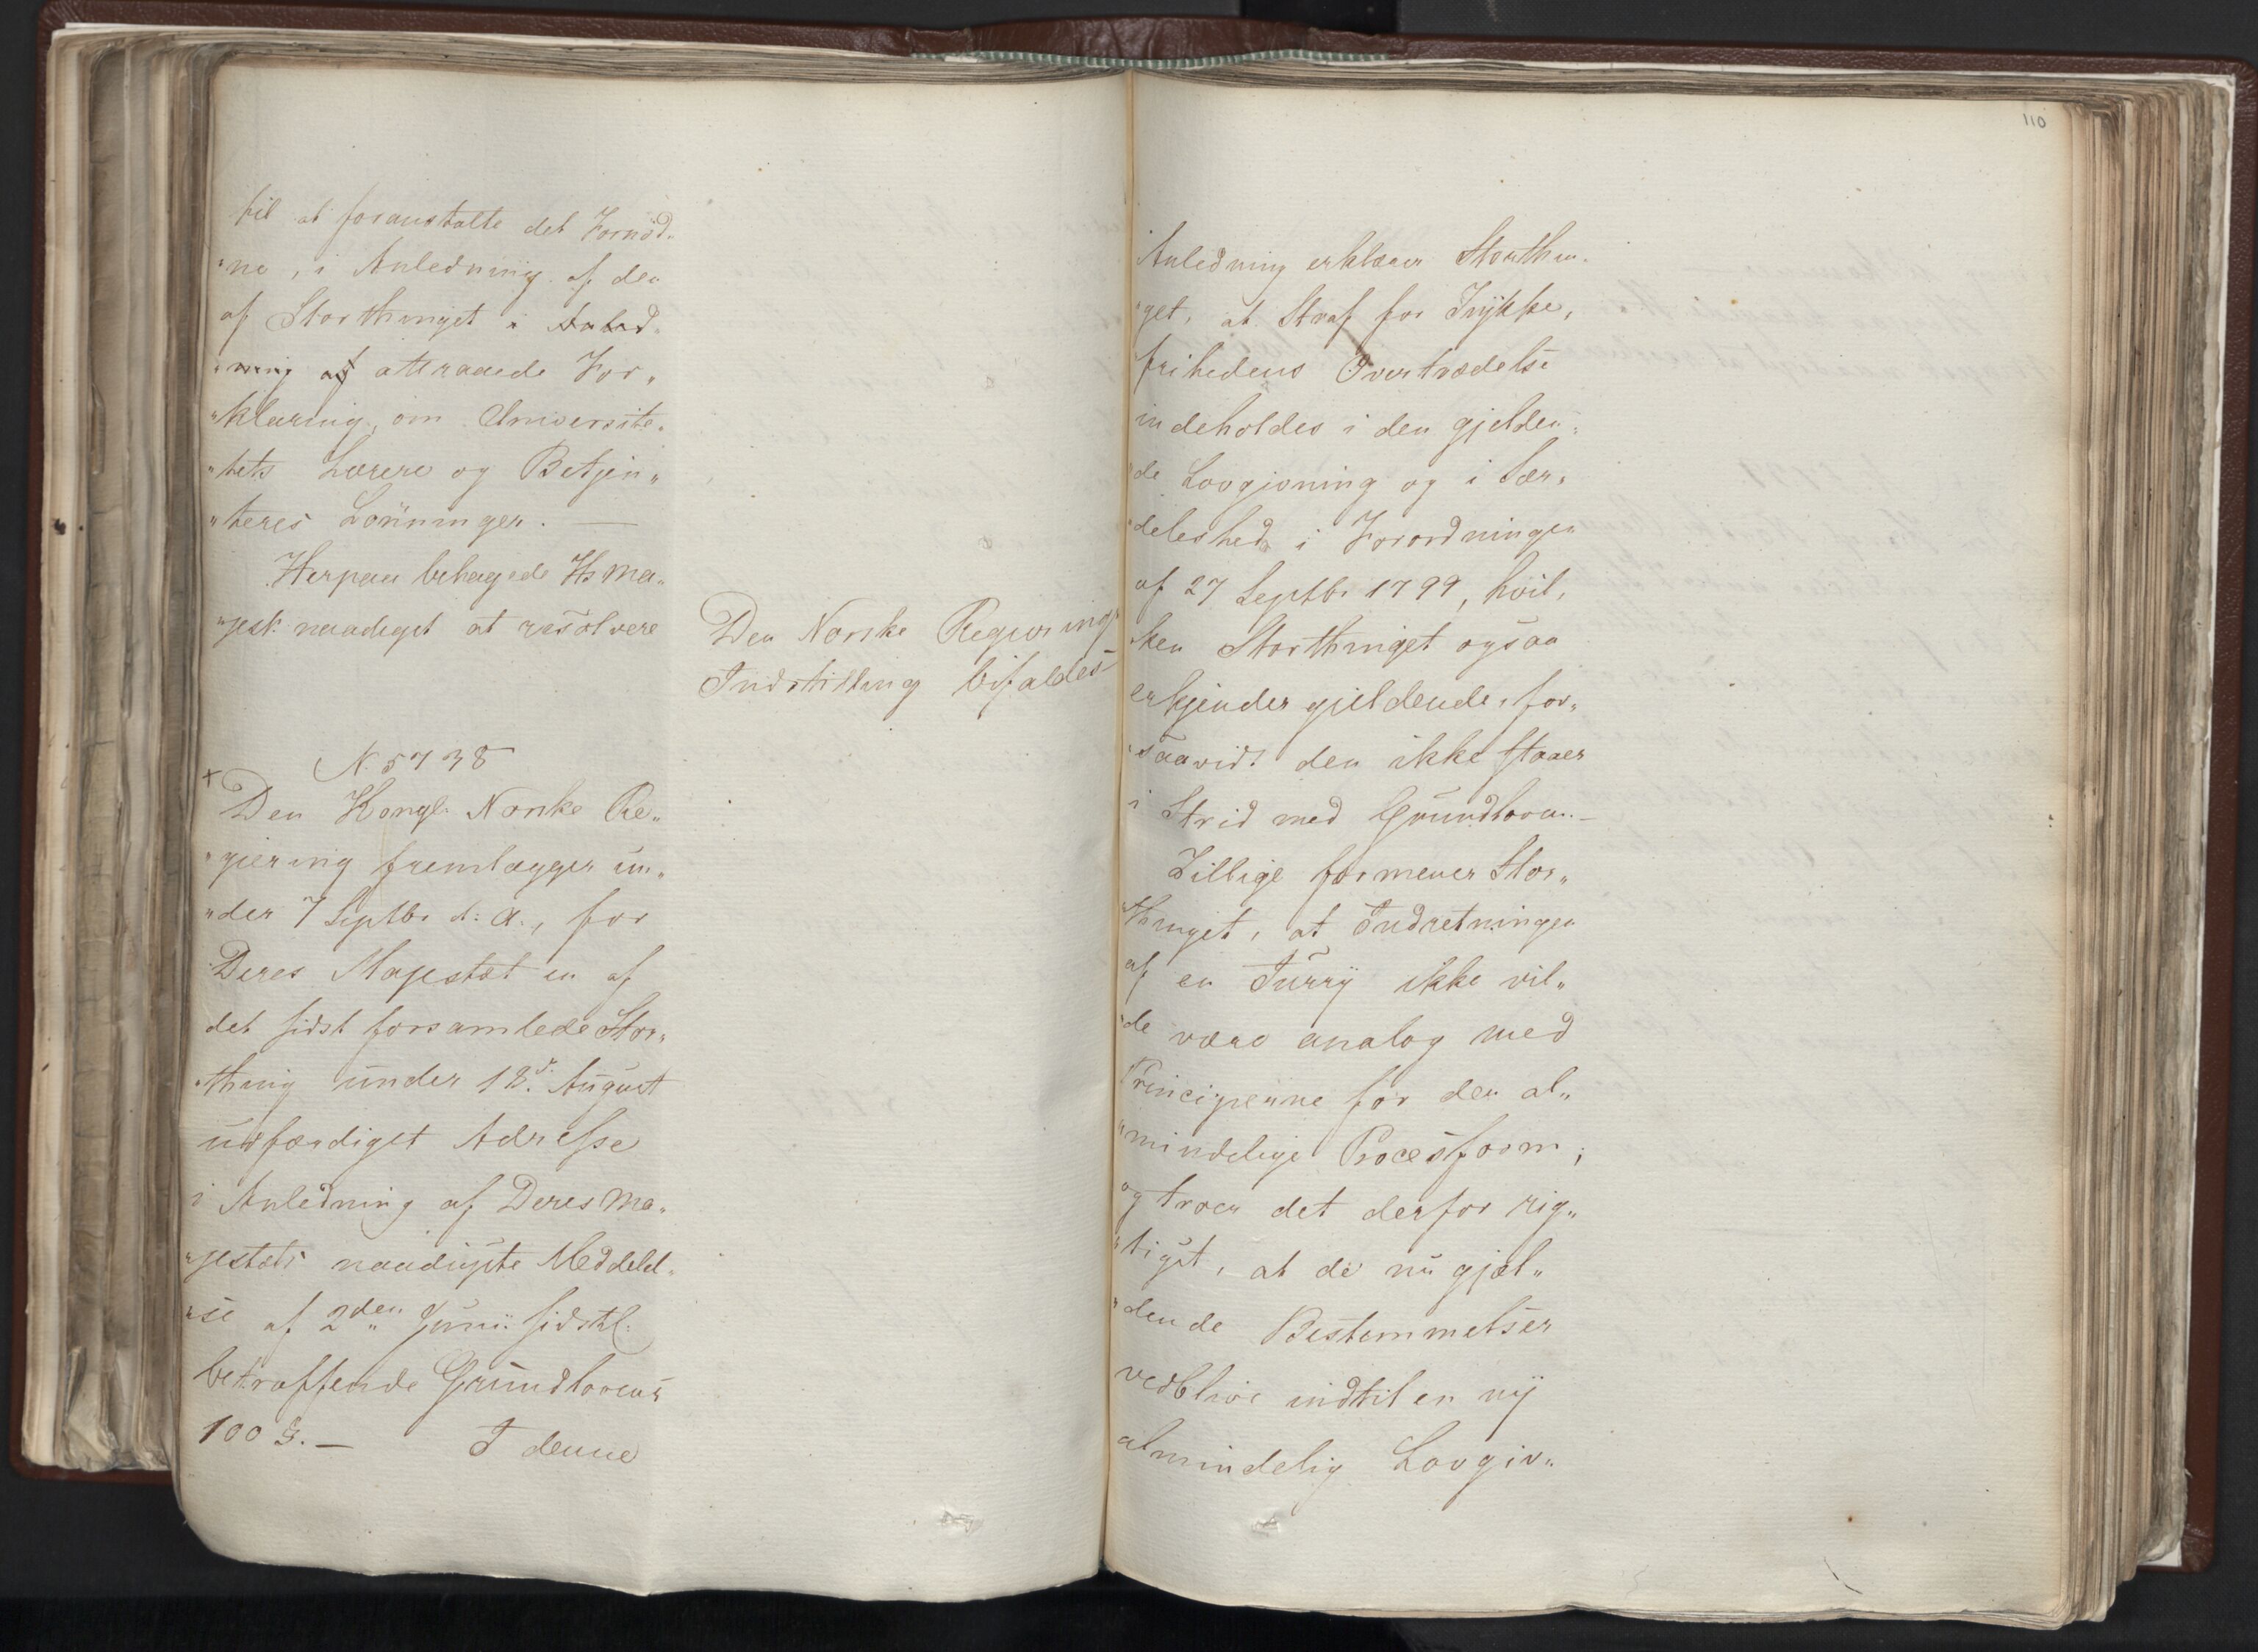 til at foranstalte det Fornöd„
„ne, i Anledning af den
af Storthinget i Anled„
„ning af attraaede For„
„klaring, om Universite„
„tets Lærere og Betjen„
„teres Lönninger. —
Herpaa behagede Hs Ma„
„jest: naadigst at resolvere
Den Norske Regjerings
Indstilling bifaldes
N. 5738
+
Den Kongl. Norske Re„
„gjering fremlægger un„
„der 7 Septbr d: A., for
Deres Majestæt en af
det sidst forsamlede Stor„
„thing under 18de August
udfærdiget Adresse
i Anledning af Deres Ma„
„jestæts naadigste Meddelel„
„se af 2den Junii sidstl:
betræffende Grundlovens
100 §. — I denne
110
Anledning erklærer Storthin„
„get, at Straf for Trykke„
frihedens Overtrædelse
indeholdes i den gjelden„
„de Lovgivning og i Sær„
„deleshed i Forordningen
af 27 Septbr 1799, hvil„
„ken Storthinget ogsaa
erkjender gjeldende, for„
„saavidt den ikke staaer
i Strid med Grundloven. —
Tillige formener Stor„
„thinget, at Indretningen
af en Jurry ikke vil„
„de være analog med
Principerne for den al„
„mindelige Procesform;
og troer det derfor rig„
„tigst, at de nu gjæl„
„dende Bestemmelser
vedblive indtil en ny
almindelig Lovgiv„